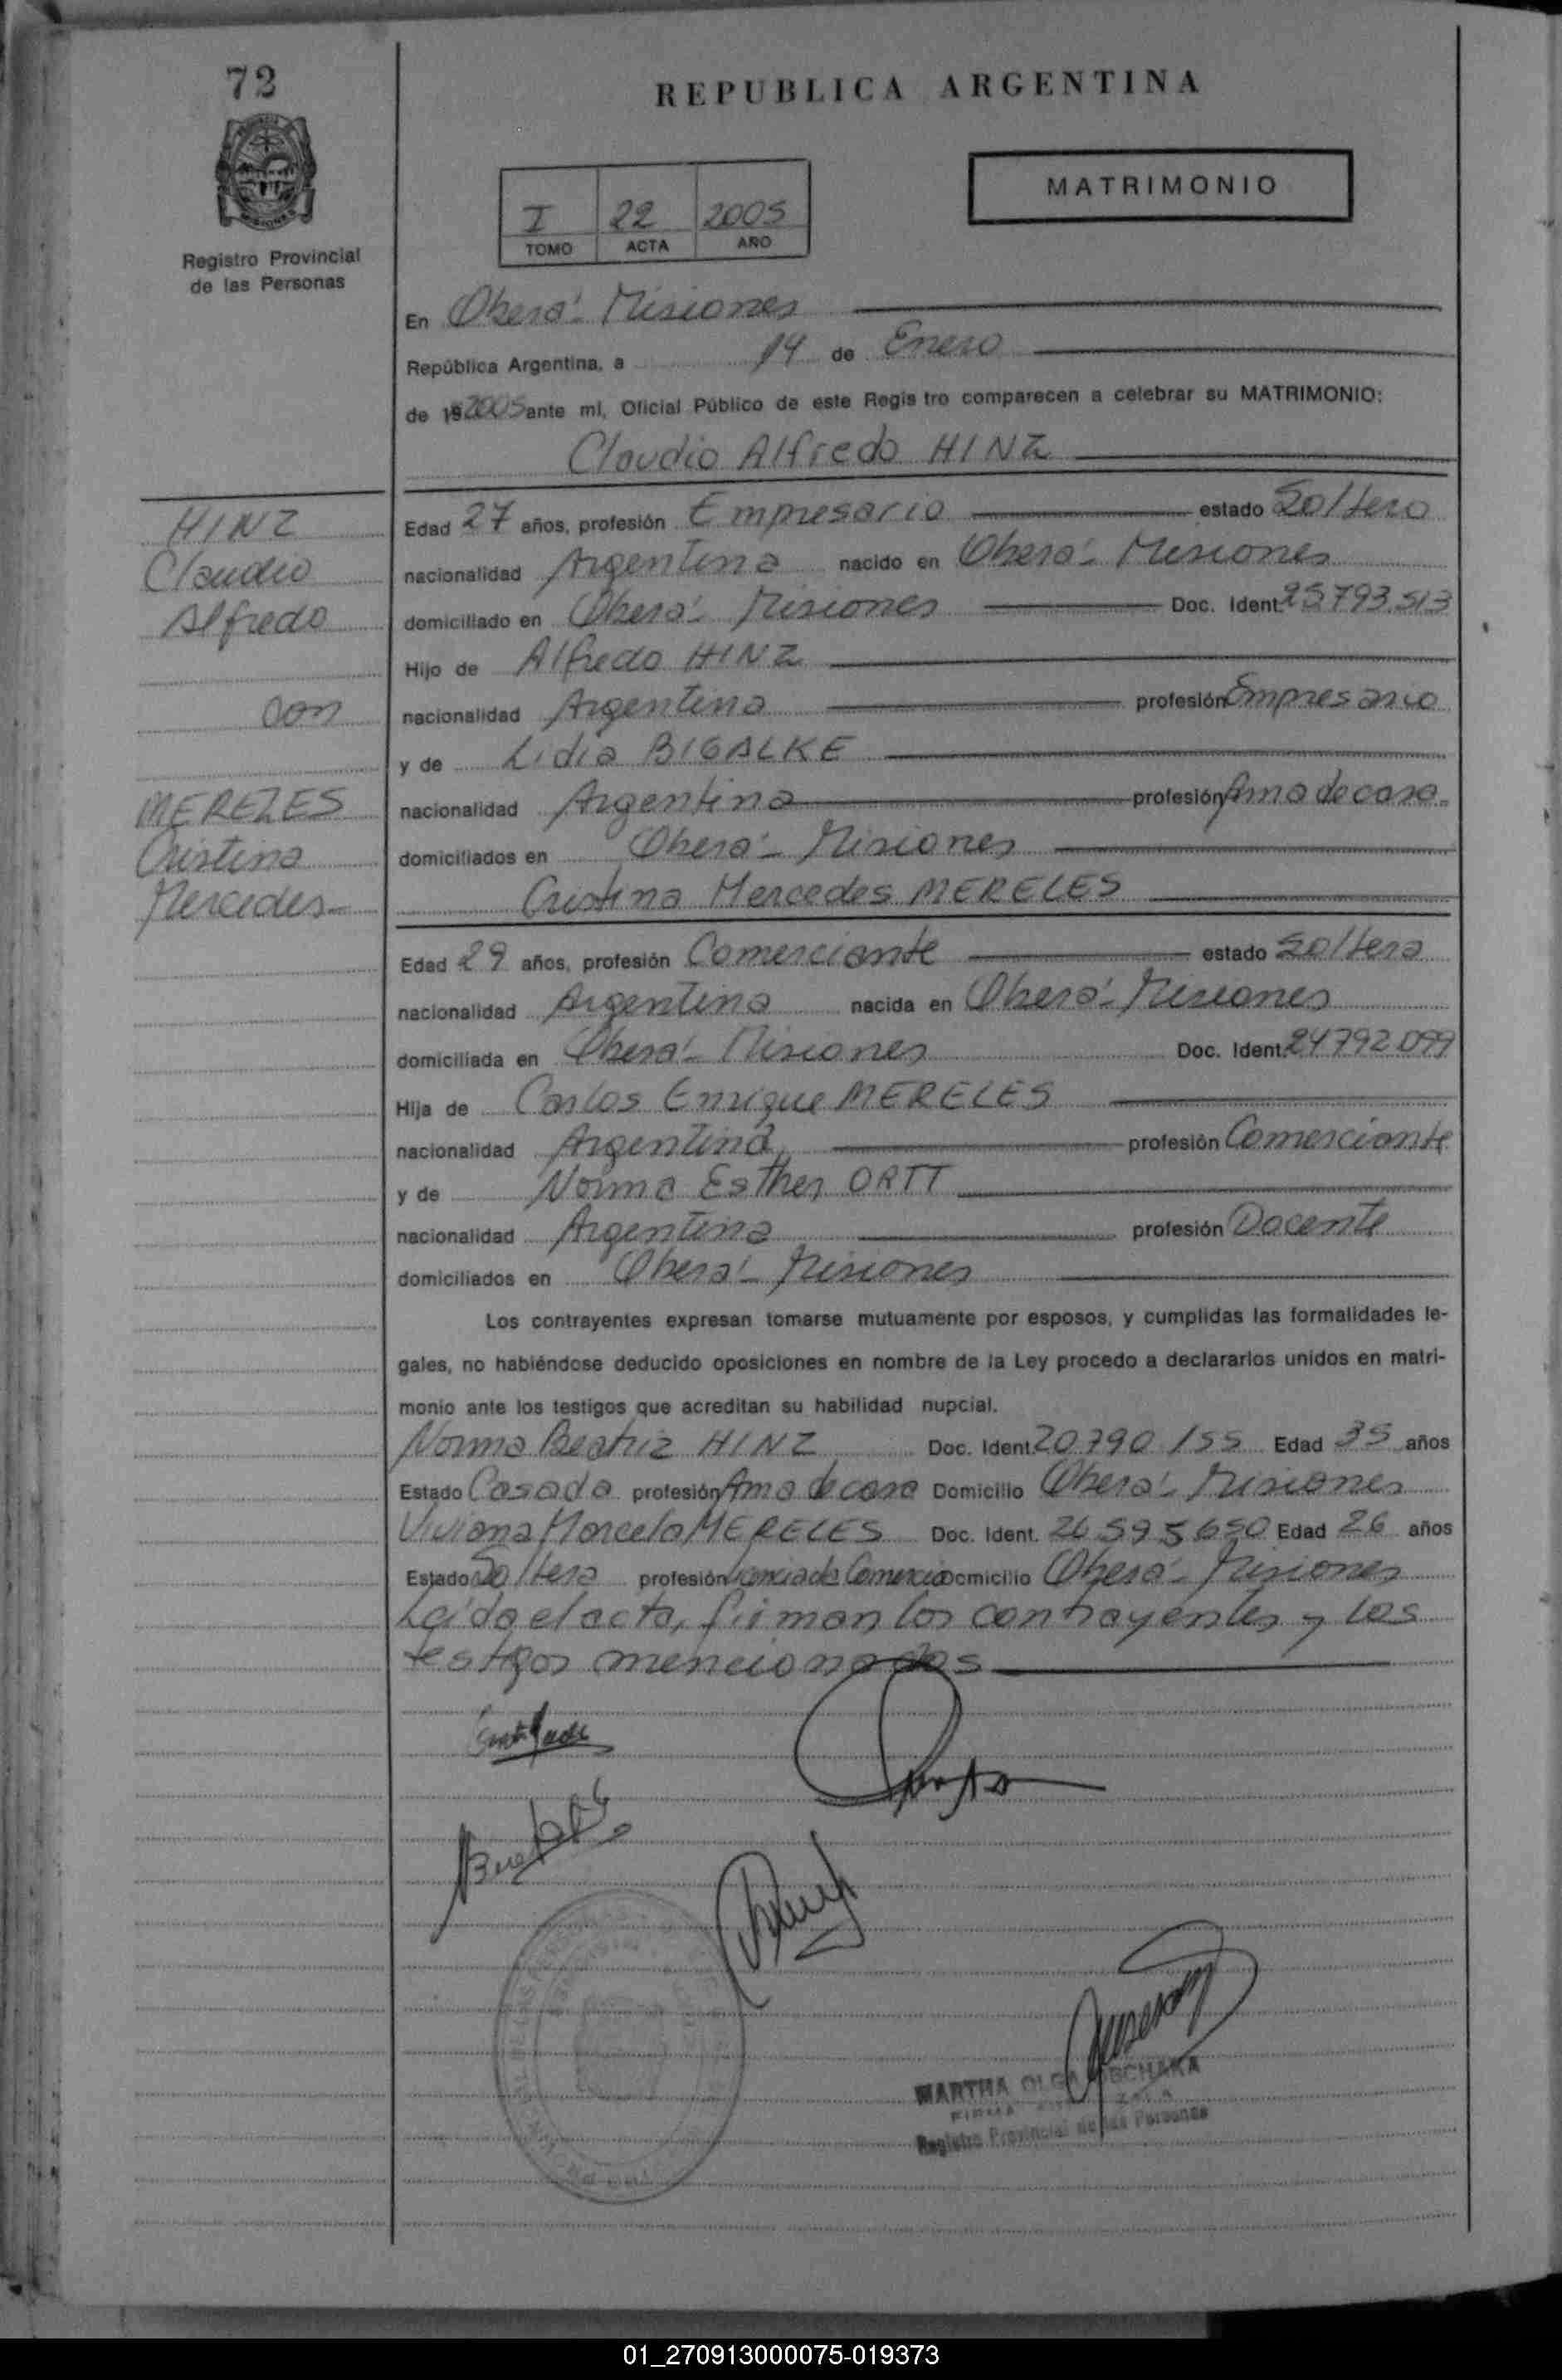 72
REPUBLICA ARGENTINA
MATRIMONIO
I 22 2005
TOMO ACTA AÑO
Registro Provincial
de las Personas
En Oberá - Misiones
República Argentina, a 14 de Enero
de 19 2005 ante mí, Oficial Público de este Registro comparecen a celebrar su MATRIMONIO:
Claudio Alfredo HINZ
HINZ
Claudio
Alfredo
con
MERELES
Cristina
Mercedes
Edad 27 años, profesión Empresario estado Soltero
nacionalidad Argentina nacido en Oberá - Misiones
domiciliado en Oberá - Misiones Doc. Ident. 25793.513
Hijo de Alfredo HINZ
nacionalidad Argentina profesión Empresario
y de Lidia BIGALKE
nacionalidad Argentina profesión Ama de casa
domiciliados en Oberá - Misiones
Cristina Mercedes MERELES
Edad 29 años, profesión Comerciante estado Soltera
nacionalidad Argentina nacida en Oberá - Misiones
domiciliada en Oberá - Misiones Doc. Ident. 24792.099
Hija de Carlos Enrique MERELES
nacionalidad Argentina profesión Comerciante
y de Norma Esther ORTT
nacionalidad Argentina profesión Docente
domiciliados en Oberá - Misiones
Los contrayentes expresan tomarse mutuamente por esposos, y cumplidas las formalidades le-
gales, no habiéndose deducido oposiciones en nombre de la Ley procedo a declararlos unidos en matri-
monio ante los testigos que acreditan su habilidad nupcial.
Norma Beatriz HINZ Doc. Ident. 20.790.155 Edad 35 años
Estado Casada profesión Ama de casa Domicilio Oberá - Misiones
Viviana Marcela MERELES Doc. Ident. 26.595.650 Edad 26 años
Estado Soltera profesión Comercio Domicilio Oberá - Misiones
Leída el acta, firman los contrayentes y los
testigos mencionados
MARTHA OLGA
FIRMA
Registro Provincial de las Personas
01_270913000075-019373